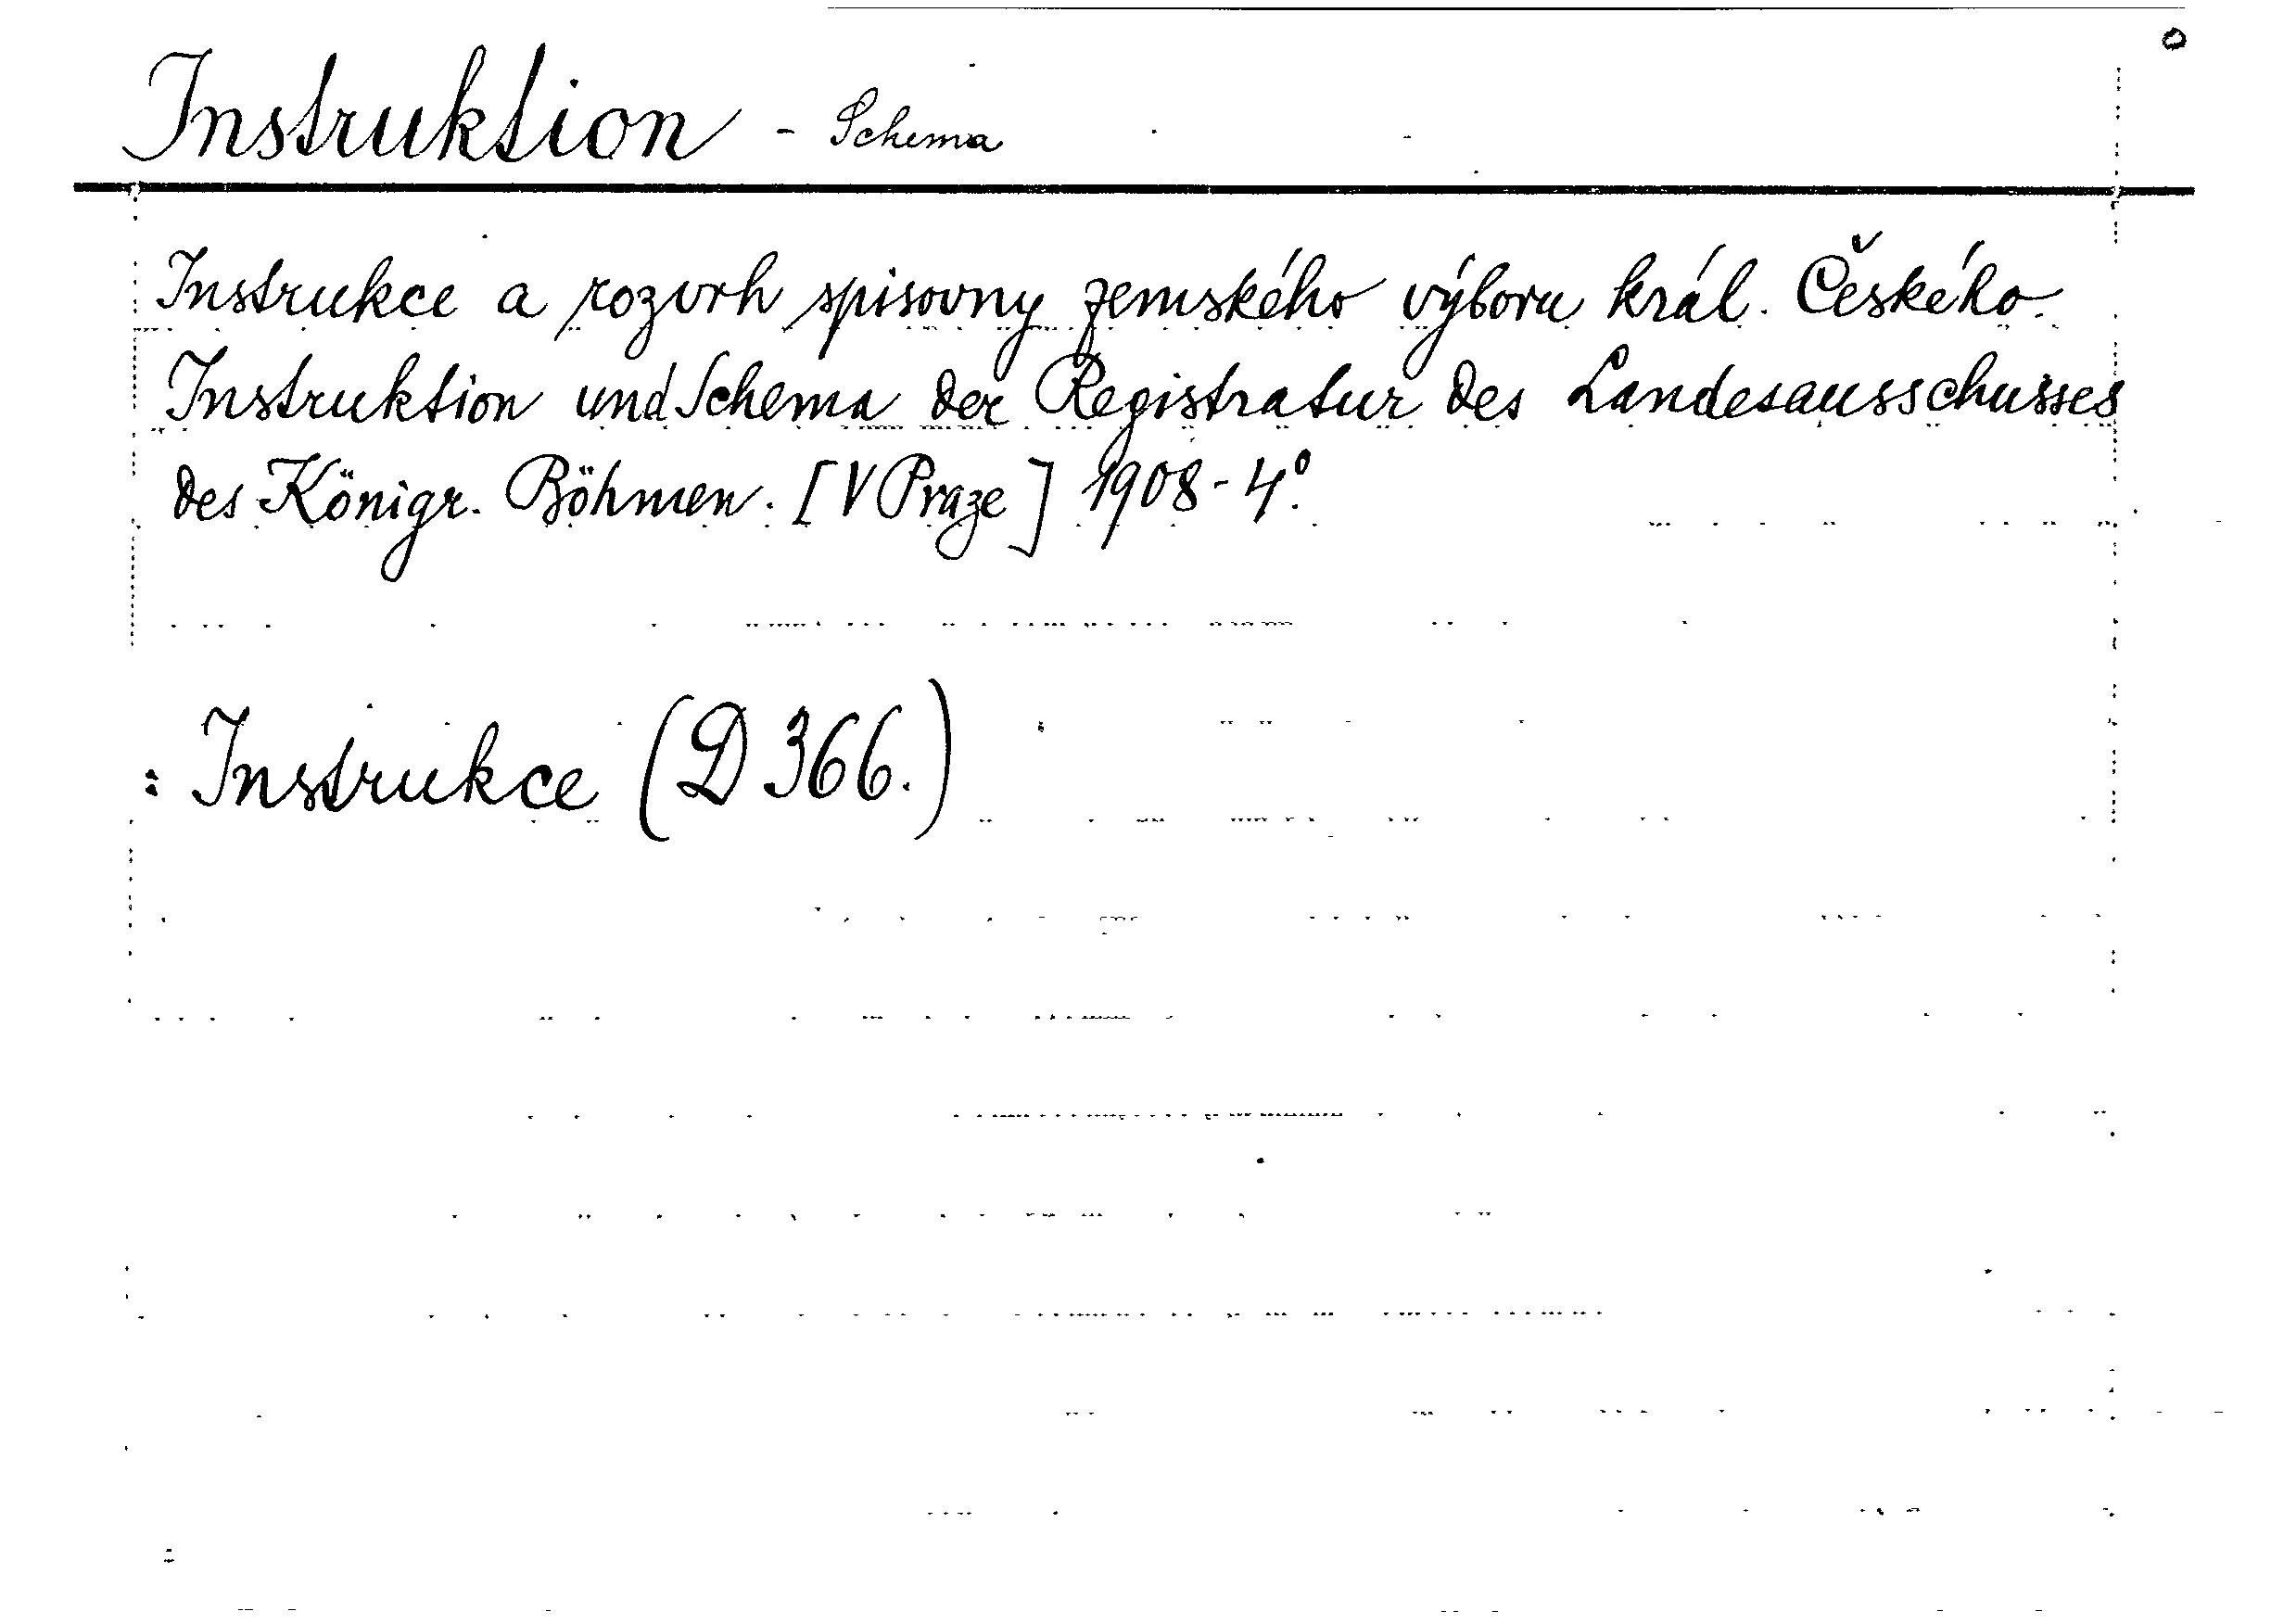 Instruktion - Schema
Instrukce a rozvrh spisovny zemského výboru král. Českého.
Instruktion und Schema der Registratur des Landesausschusses
des Königr. Böhmen. [V Praze] 1908 - 4°.
: Instrukce (D 366.)